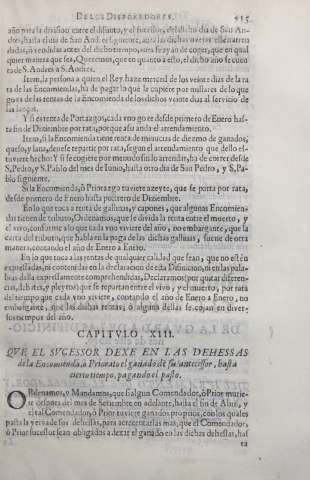 DE LOS DISPOREDORES. 515
año para la division entre el difunto, y el succesor, del dicho dia de San An-
dres, hasta el dia de San Andres siguiente, aunque las dichas rentas esten arren
dadas, ò vendidas antes del dicho tiempo, ora se ayan de coger, en qual
quier manera que sea, Queremos, que en quanto a esto, el dicho año se cuen
ta de S. Andres a S. Andres.
Item, la persona a quien el Rey haze merced de los veinte dias de la ra
ta de las Encomiendas, ha de pagar lo que la cupiere por millares de lo que
goza de las rentas de la Encomienda de los dichos veinte dias al servicio de
las lanças.
Y si es renta de Portazgos, cada vno goze desde primero de Enero has-
ta fin de Diziembre por rata, porque assi anda el arrendamiento.
Item, si la Encomienda tiene renta de minucias de diezmo de ganados,
queso, y lana, deuese repartir por rata, segun el arrendamiento que dello es-
tuuiere hecho: Y si se cogiere por menudo sin lo arrendar, ha de correr desde
S. Pedro, y S. Pablo del mes de Iunio, hasta otro dia de San Pedro, y S. Pa-
blo siguiente.
Si la Encomienda, ò Priorazgo tuuiere azeyte, que se parta por rata,
desde primero de Enero hasta postrero de Diziembre.
En lo que toca a renta de gallinas, y capones, que algunas Encomien-
das tienen de tributo, Ordenamos, que se divida la renta entre el muerto, y
el vivo, conforme a lo que cada vno viviere del año, no embargante, que la
carta del tributo, que habla en la paga de las dichas gallinas, suene de otra
manera, contando el año de Enero a Enero.
En lo que toca a las rentas de qualquier calidad que sean, que no estèn
expressadas, ni contenidas en la declaracion de esta Difinicion, ni en las pala-
bras della expressamente comprehendidas, Declaramos (por quitar diferen-
cias, debates, y pleytos) que se repartan entre el vivo, y el muerto, por rata
del tiempo que cada vno viviere, contando el año de Enero a Enero, no
embargante, que las dichas rentas, ò alguna dellas se cojan en diver-
sos tiempos del año.
CAPITVLO. XIII.
QVE EL SVCESSOR DEXE EN LAS DEHESSAS
de la Encomienda, ò Priorato el ganado de su antecessor, hasta
cierto tiempo, pagando el pasto.
ORdenamos, y Mandamos, que si algun Comendador, ò Prior murie-
re despues del mes de Setiembre en adelante, hasta el fin de Abril, y
el tal Comendador, ò Prior tuuiere ganados proprios, con los quales
pasta la yerva de sus dehessas, para acrecentarlas mas, que el Comendador,
ò Prior successor sean obligados a dexar el ganado en las dichas dehessas, has
ta